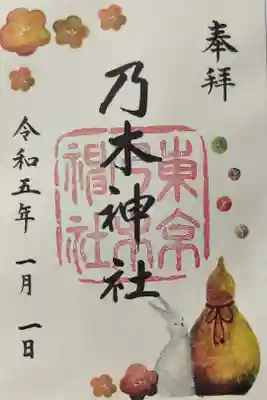 奉拝
乃木神社
東京乃木神社
令和五年 一月 一日